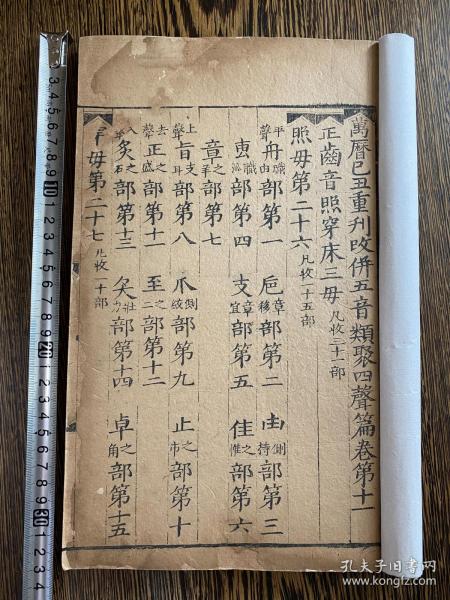 萬曆己丑重刋改併五音類聚四聲篇卷第十一
正齒音照穿床三母 凡收三十一部
照母第二十六 凡收一十五部
平聲 舟職由部第一 巵章移部第二 甾側持部第三
部第四 支章宜部第五 隹之惟部第六
章之羊部第七
上聲 旨支耳部第八 爪側絞部第九 止之市部第十
去聲 正之盛部第十一 至之二部第十二
入聲 炙之石部第十三 部第十四 卓之角部第十五
母第二十七 凡收一十部
孔夫子旧书网
www.kongfz.com